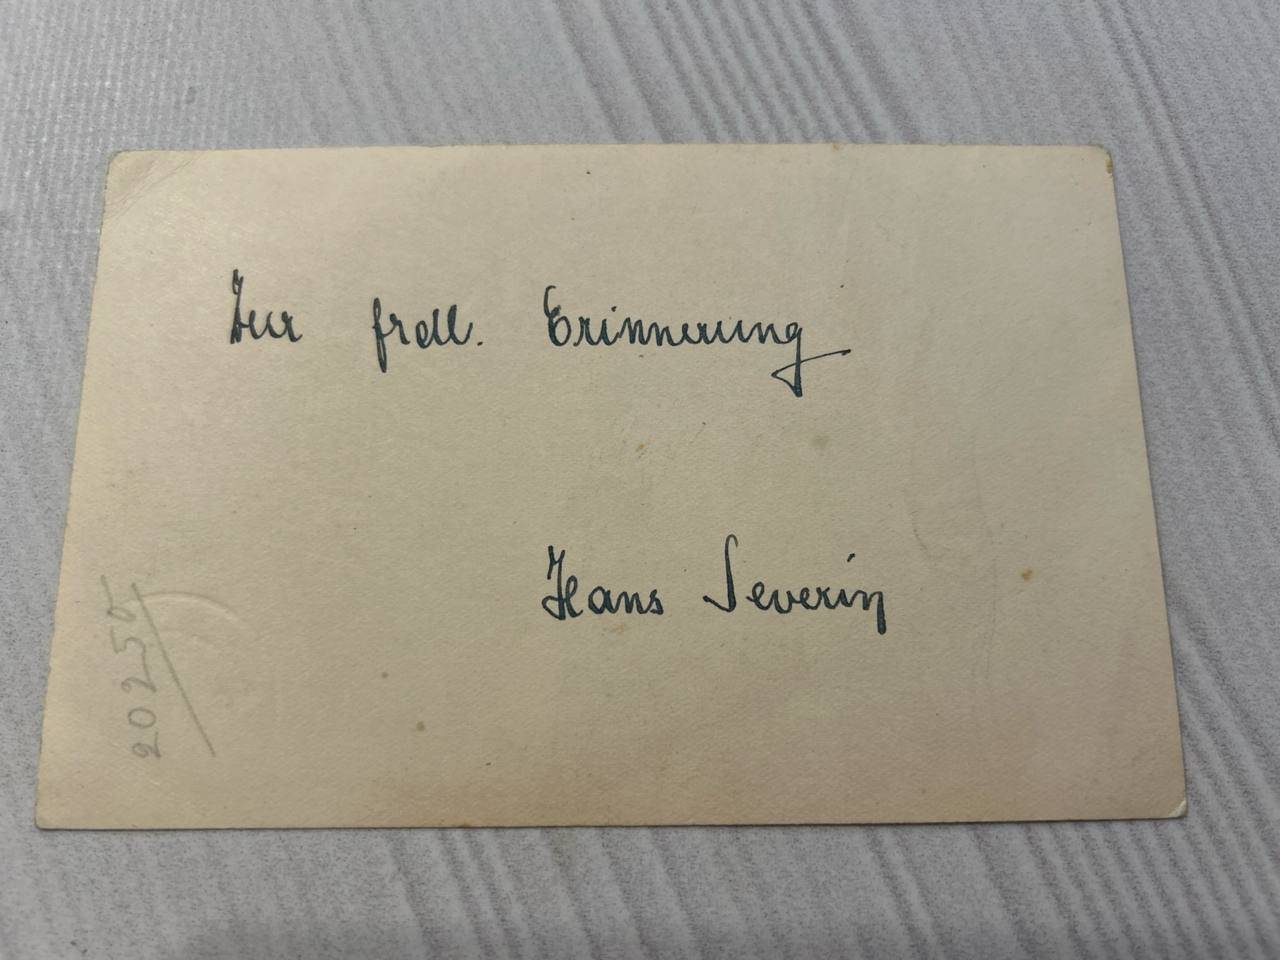 Zur frdl. Erinnerung
Hans Severin
20255